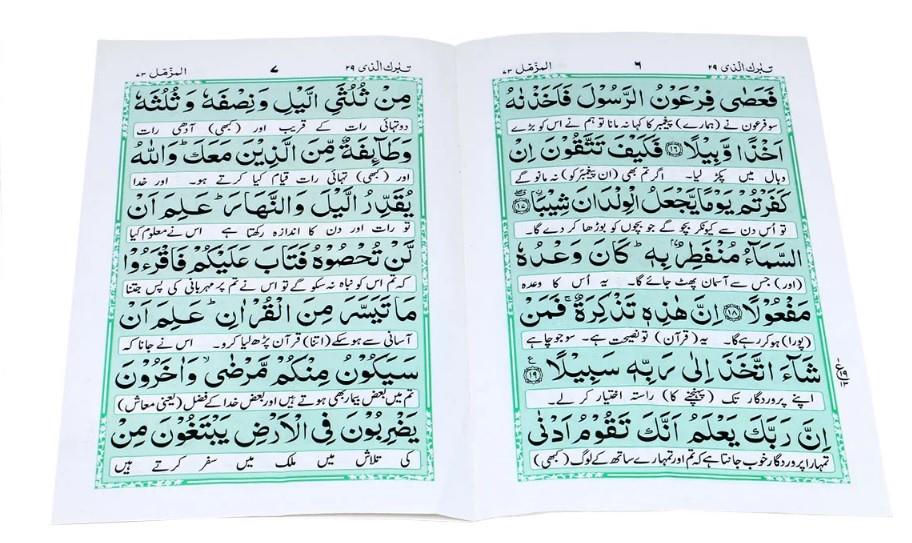 تبٰرك الذى ٢٩
٦
المزّمّل ٧٣
فَعَصٰى فِرْعَوْنُ الرَّسُوْلَ فَاَخَذْنٰهُ
سو فرعون نے (ہمارے) پیغمبر کا کہا نہ مانا تو ہم نے اس کو بڑے
اَخْذًا وَّبِيْلًا ﴿١٦﴾ فَكَيْفَ تَتَّقُوْنَ اِنْ
وبال میں پکڑ لیا۔ اگر تم بھی (ان پیغمبر کو) نہ مانو گے
كَفَرْتُمْ يَوْمًا يَّجْعَلُ الْوِلْدَانَ شِيْبًا ﴿١٧﴾
تو اُس دن سے کیونکر بچو گے جو بچوں کو بوڑھا کر دے گا۔
السَّمَآءُ مُنْفَطِرٌۢ بِهٖ ؕ كَانَ وَعْدُهٗ
(اور) جس سے آسمان پھٹ جائے گا۔ یہ اُس کا وعدہ
مَفْعُوْلًا ﴿١٨﴾ اِنَّ هٰذِهٖ تَذْكِرَةٌ ۚ فَمَنْ
(پورا) ہو کر رہے گا۔ یہ (قرآن) تو نصیحت ہے۔ سو جو چاہے
شَآءَ اتَّخَذَ اِلٰى رَبِّهٖ سَبِيْلًا ﴿١٩﴾
ع ١٩ ١٣
اپنے پروردگار تک (پہنچنے کا) راستہ اختیار کر لے۔
اِنَّ رَبَّكَ يَعْلَمُ اَنَّكَ تَقُوْمُ اَدْنٰى
تمہارا پروردگار خوب جانتا ہے کہ تم اور تمہارے ساتھ کے لوگ (کبھی)
تبٰرك الذى ٢٩
٧
المزّمّل ٧٣
مِنْ ثُلُثَيِ الَّيْلِ وَنِصْفَهٗ وَثُلُثَهٗ
دو تہائی رات کے قریب اور (کبھی) آدھی رات
وَطَآئِفَةٌ مِّنَ الَّذِيْنَ مَعَكَ ؕ وَاللّٰهُ
اور (کبھی) تہائی رات قیام کیا کرتے ہو۔ اور خدا
يُقَدِّرُ الَّيْلَ وَالنَّهَارَ ؕ عَلِمَ اَنْ
تو رات اور دن کا اندازہ رکھتا ہے اس نے معلوم کیا
لَّنْ تُحْصُوْهُ فَتَابَ عَلَيْكُمْ فَاقْرَءُوْا
کہ تم اس کو نباہ نہ سکو گے تو اس نے تم پر مہربانی کی پس جتنا
مَا تَيَسَّرَ مِنَ الْقُرْاٰنِ ؕ عَلِمَ اَنْ
آسانی سے ہو سکے (اتنا) قرآن پڑھ لیا کرو۔ اس نے جانا کہ
سَيَكُوْنُ مِنْكُمْ مَّرْضٰى ۙ وَاٰخَرُوْنَ
تم میں بعض بیمار بھی ہوتے ہیں اور بعض خدا کے فضل (یعنی معاش)
يَضْرِبُوْنَ فِى الْاَرْضِ يَبْتَغُوْنَ مِنْ
کی تلاش میں ملک میں سفر کرتے ہیں